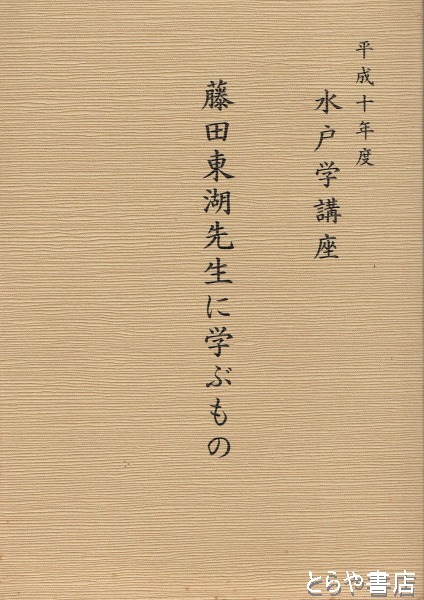 平成十年度
水戸学講座
藤田東湖先生に学ぶもの
とらや書店